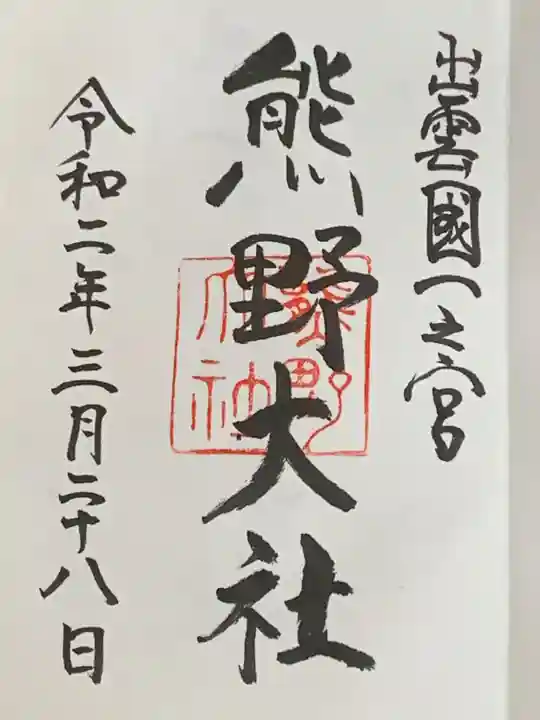 出雲國一之宮
熊野大社
熊野大社
令和二年三月二十八日